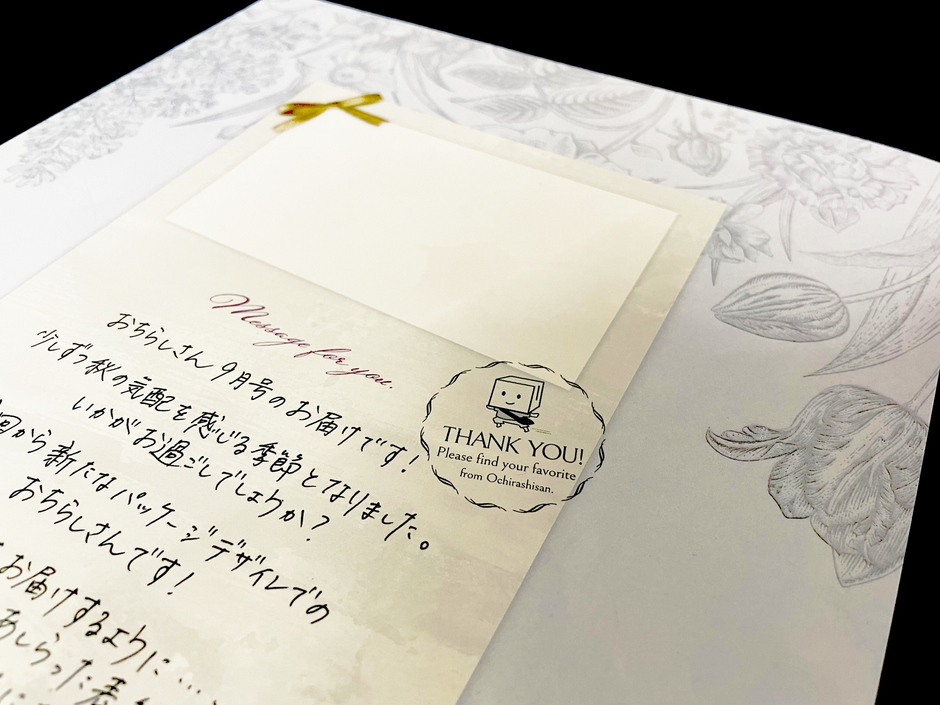 Message for you.
おちらしさん 9月号のお届けです!
少しずつ秋の気配を感じる季節となりました。
いかがお過ごしでしょうか?
回から新たなパッケージデザインでの
おちらしさんです!
お届けするように…
あしらった春
THANK YOU!
Please find your favorite
from Ochirashisan.